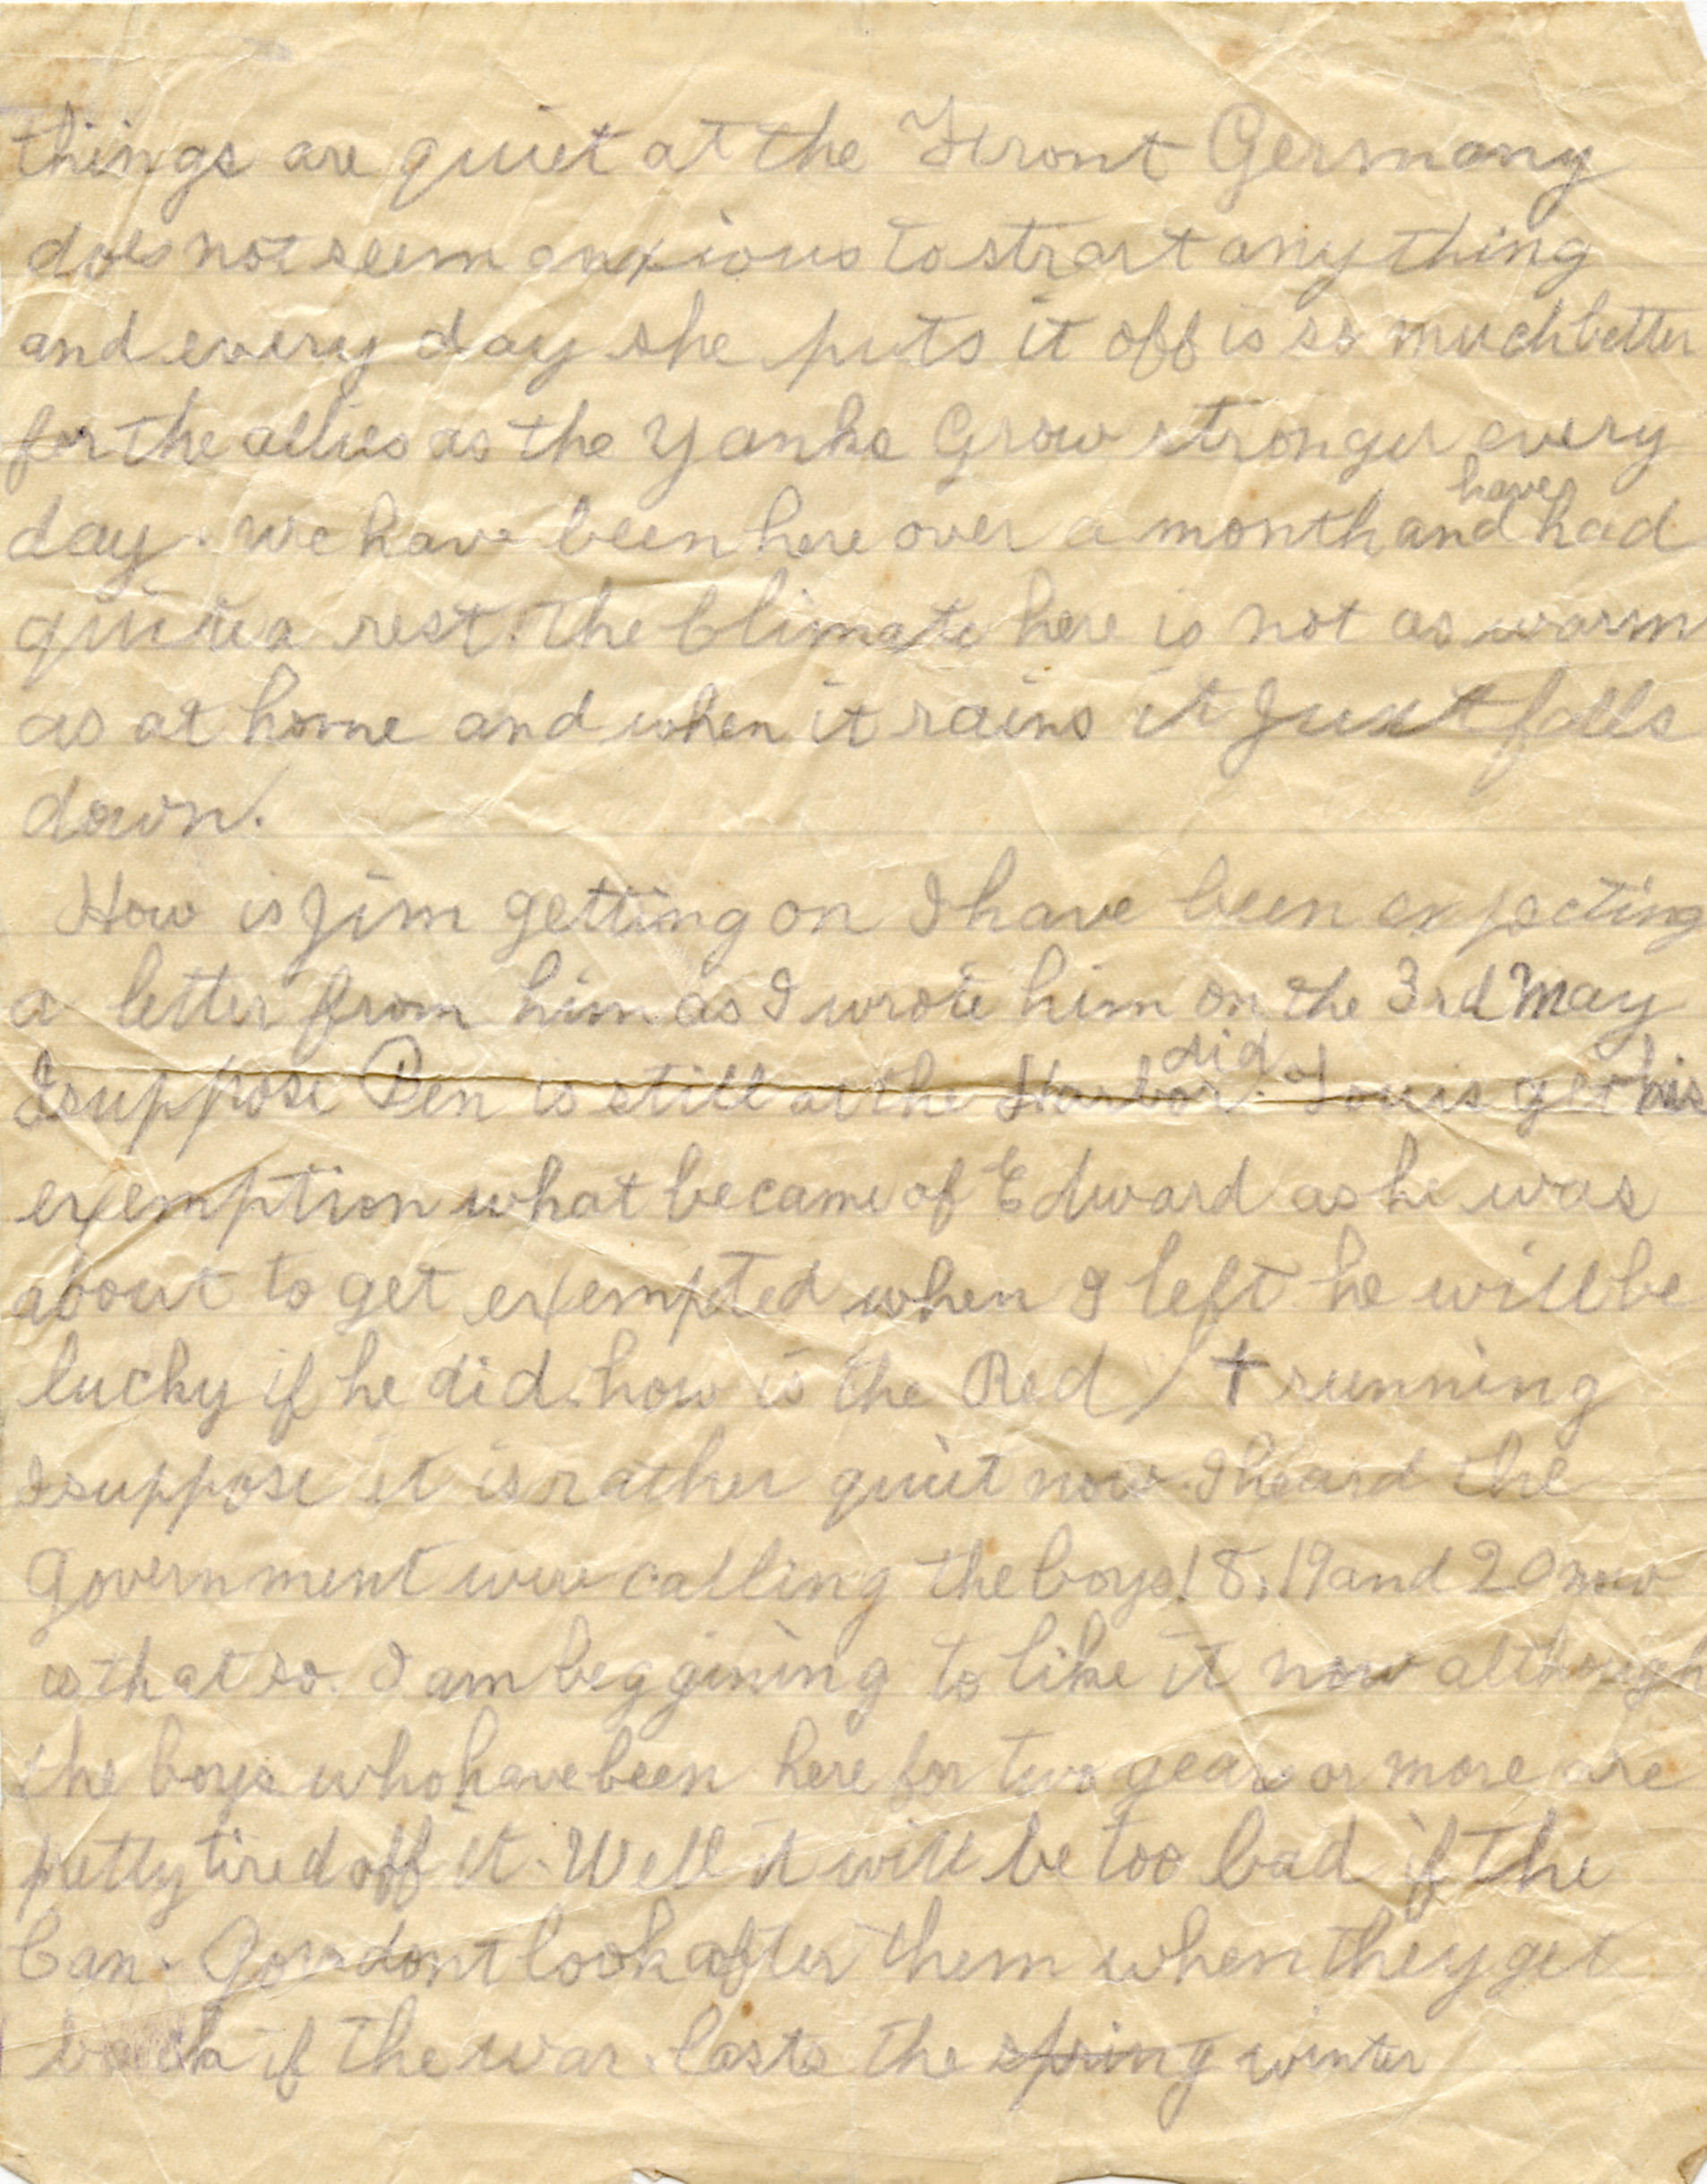 things are quiet at the Front Germany
does not seem anxious to start anything
and every day she puts it off is so much better
for the allies as the Yanks Grow stronger every
day. we have been here over a month and have had
quite a rest. the Climate here is not as warm
as at home and when it rains it Just falls
down.
How is Jim getting on I have been expecting
a letter from him as I wrote him on the 3rd May
I suppose Pen is still at the Harbor. did Louis get his
exemption what became of Edward as he was
about to get exempted when I left he will be
lucky if he did. how is the Red † running
I suppose it is rather quiet now. I heard the
Government were calling the boys 18, 19 and 20 now
is that so. I am beggining to like it now although
the boys who have been here for two years or more are
petty tired off it. Well it will be too bad if the
Can. Gov dont look after them when they get
back if the war lasts the spring winter